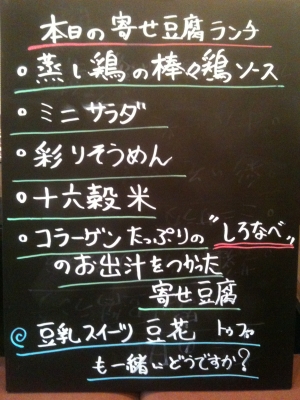 本日の寄せ豆腐ランチ
○蒸し鶏の棒々鶏ソース
○ミニサラダ
○彩りそうめん
○十六穀米
○コラーゲンたっぷりの"しろなべ"
のお出汁をつかった
寄せ豆腐
◎豆乳スイーツ 豆花 トゥファ
も一緒にどうですか?